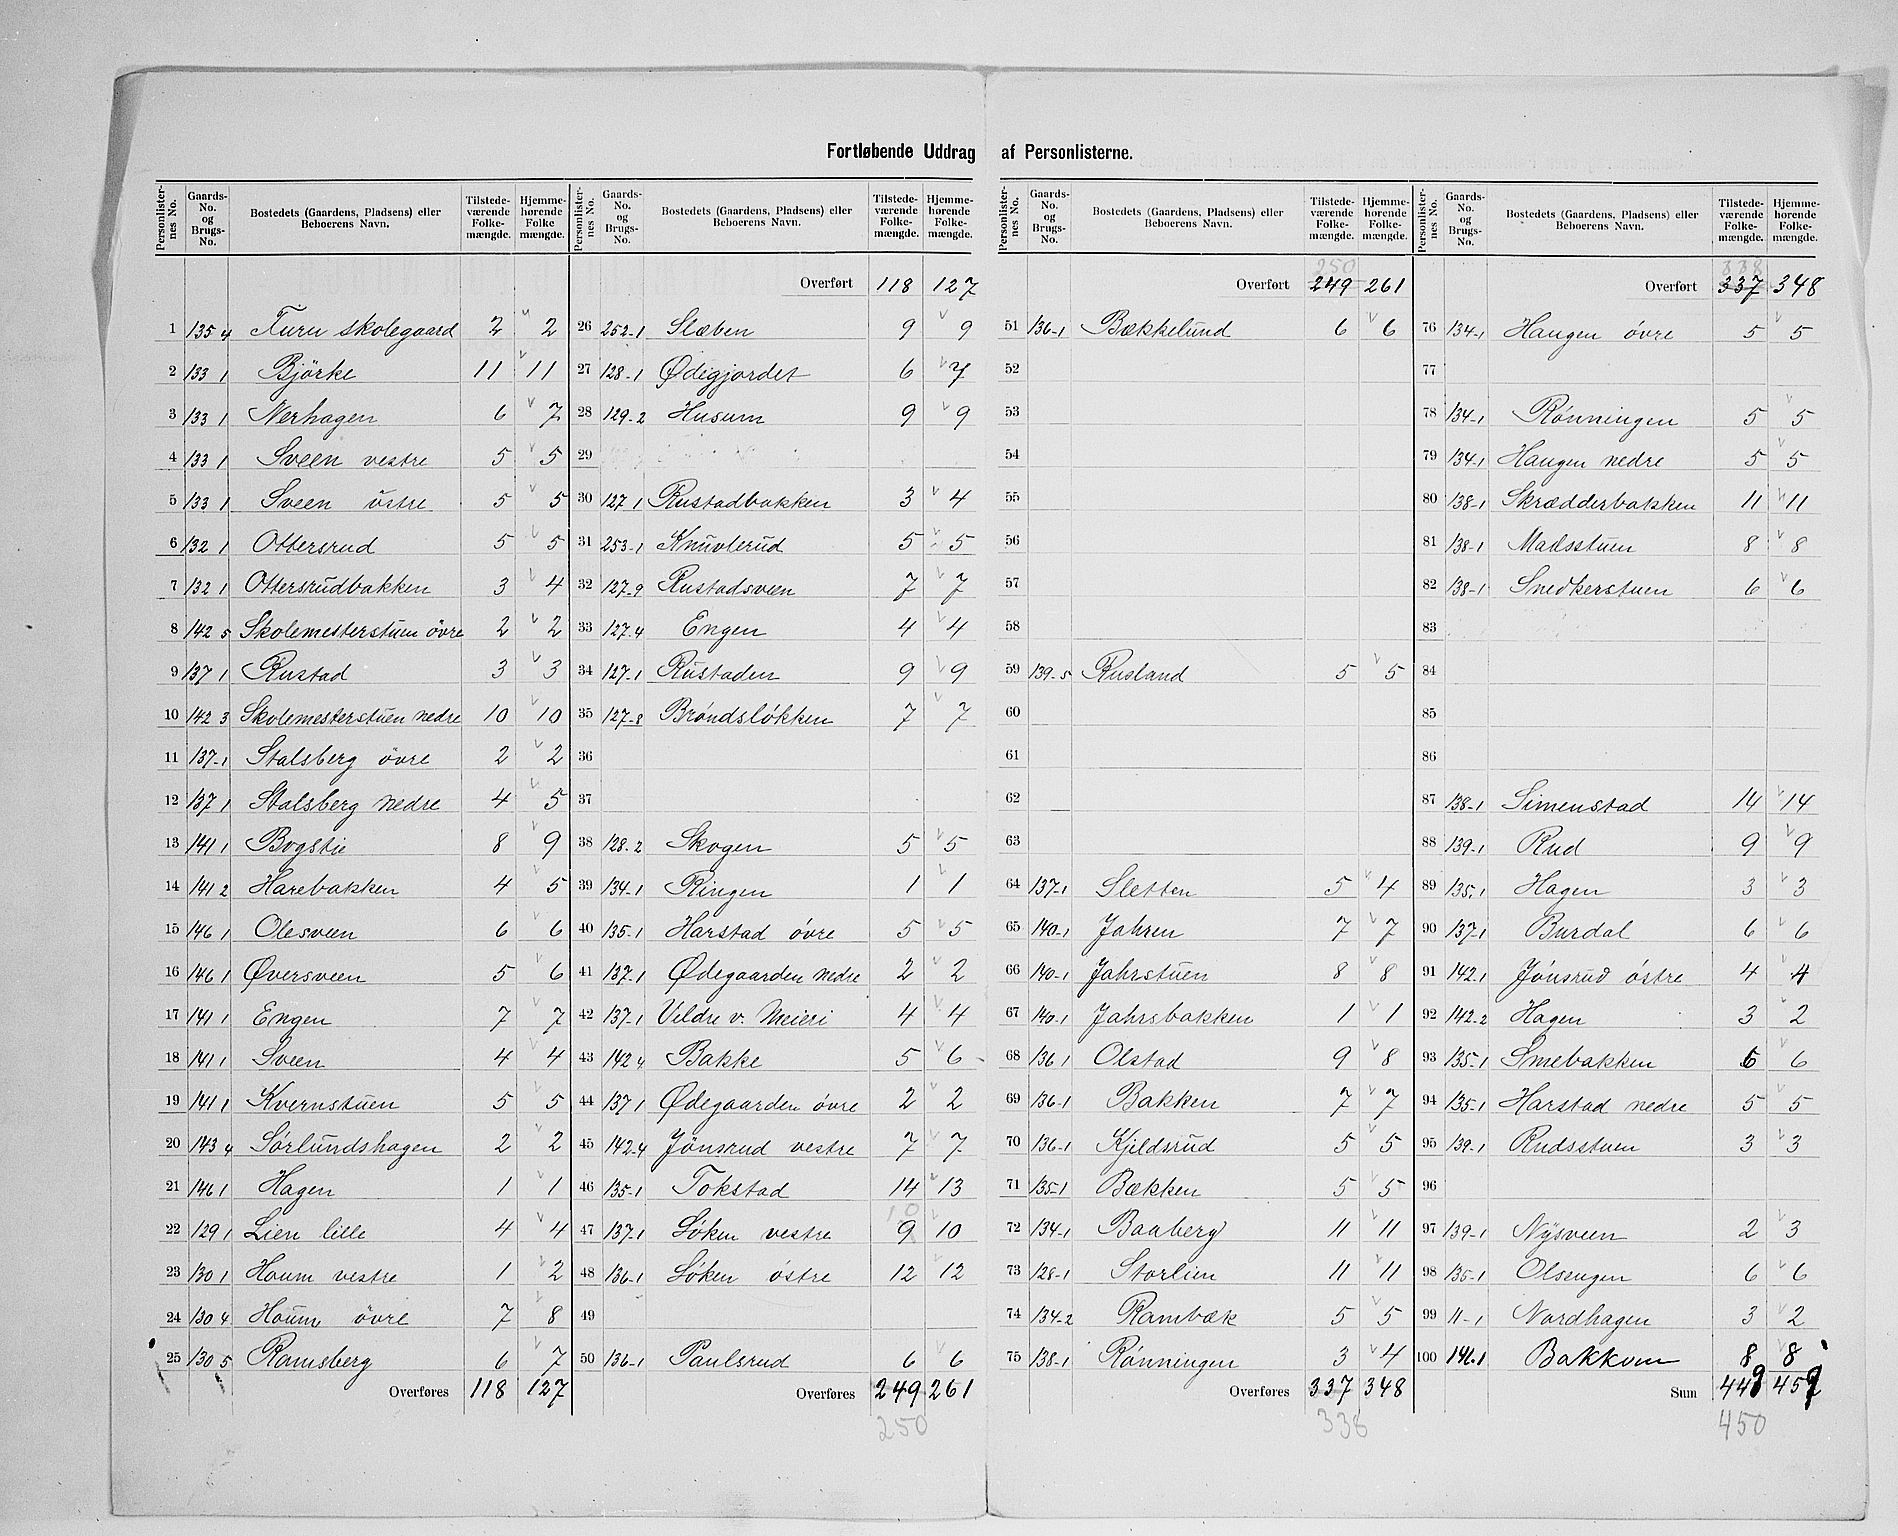 Fortløbende Uddrag af Personlisterne.
Personlisternes No. | Gaards-No. og Brugs-No. | Bostedets (Gaardens, Pladsens) eller Beboerens Navn. | Tilstedeværende Folkemængde. | Hjemmehørende Folkemængde.
1 135 4 Furu skolegaard 2 2
2 133 1 Björke 11 11
3 133 1 Nerhagen 6 7
4 133 1 Sveen vestre 5 5
5 133 1 Sveen östre 5 5
6 132 1 Ottersrud 5 5
7 132 1 Ottersrudbakken 3 4
8 142 5 Skolemesterstuen övre 2 2
9 137 1 Rustad 3 3
10 142 3 Skolemesterstuen nedre 10 10
11 137-1 Stalsberg övre 2 2
12 137 1 Stalsberg nedre 4 5
13 141 1 Bogstie 8 9
14 141 2 Harebakken 4 5
15 146 1 Olesveen 6 6
16 146 1 Øversveen 5 6
17 141 1 Engen 7 7
18 141 1 Sveen 4 4
19 141 1 Kvernstuen 5 5
20 143 4 Sörlundshagen 2 2
21 146 1 Hagen 1 1
22 129 1 Lien lille 4 4
23 130 1 Houm vestre 1 2
24 130 4 Houm övre 7 8
25 130 5 Ramsberg 6 7
Overføres 118 127
Personlisternes No. | Gaards-No. og Brugs-No. | Bostedets (Gaardens, Pladsens) eller Beboerens Navn. | Tilstedeværende Folkemængde. | Hjemmehørende Folkemængde.
Overført 118 127
26 252-1 Slæben 9 9
27 128-1 Ødegjordet 6 7
28 129-2 Husum 9 9
29
30 127 1 Rustadbakken 3 4
31 253-1 Knuvlerud 5 5
32 127-9 Rustadsveen 7 7
33 127-4 Engen 4 4
34 127-1 Rustaden 9 9
35 127-8 Bröndslökken 7 7
36
37
38 128-2 Skogen 5 5
39 134-1 Ringen 1 1
40 135-1 Harstad övre 5 5
41 137-1 Ødegaarden nedre 2 2
42 137-1 Vildre v. Meieri 4 4
43 142 4 Bakke 5 6
44 137 1 Ødegaarden övre 2 2
45 142-4 Jönsrud vestre 7 7
46 135-1 Tokstad 14 13
10
47 137-1 Löken vestre 9 10
48 136-1 Löken östre 12 12
49
50 136-1 Paulsrud 6 6
Overføres 249 261
250
Personlisternes No. | Gaards-No. og Brugs-No. | Bostedets (Gaardens, Pladsens) eller Beboerens Navn. | Tilstedeværende Folkemængde. | Hjemmehørende Folkemængde.
250
Overført 249 261
51 136-1 Bækkelund 6 6
52
53
54
55
56
57
58
59 139-5 Rusland 5 5
60
61
62
63
64 137-1 Sletten 5 4
65 140-1 Jahren 7 7
66 140-1 Jahrstuen 8 8
67 140-1 Jahrsbakken 1 1
68 136 1 Olstad 9 8
69 136-1 Bakken 7 7
70 136-1 Kjeldsrud 5 5
71 135-1 Bækken 5 5
72 134-1 Baaberg 11 11
73 128-1 Storlien 11 11
74 134-2 Rambæk 5 5
75 138-1 Rönningen 3 4
Overføres 337 348
338
Personlisternes No. | Gaards-No. og Brugs-No. | Bostedets (Gaardens, Pladsens) eller Beboerens Navn. | Tilstedeværende Folkemængde. | Hjemmehørende Folkemængde.
338
Overført 337 348
76 134-1 Haugen övre 5 5
77
78 134-1 Rönningen 5 5
79 134-1 Haugen nedre 5 5
80 138-1 Skrædderbakken 11 11
81 138-1 Madsstuen 8 8
82 138-1 Snedkerstuen 6 6
83
84
85
86
87 138-1 Simenstad 14 14
88 139-1 Rud 9 9
89 135.1 Hagen 3 3
90 137-1 Burdal 6 6
91 142-1 Jönsrud östre 4 4
92 142-2 Hagen 3 2
93 135-1 Smebakken 6 6
94 135-1 Harstad nedre 5 5
95 139-1 Rudsstuen 3 3
96
97 139-1 Nysveen 2 3
98 135-1 Olsengen 6 6
99 11-1 Nordhagen 3 2
100 146.1 Bakkom 8 8
Sum 449 459
450